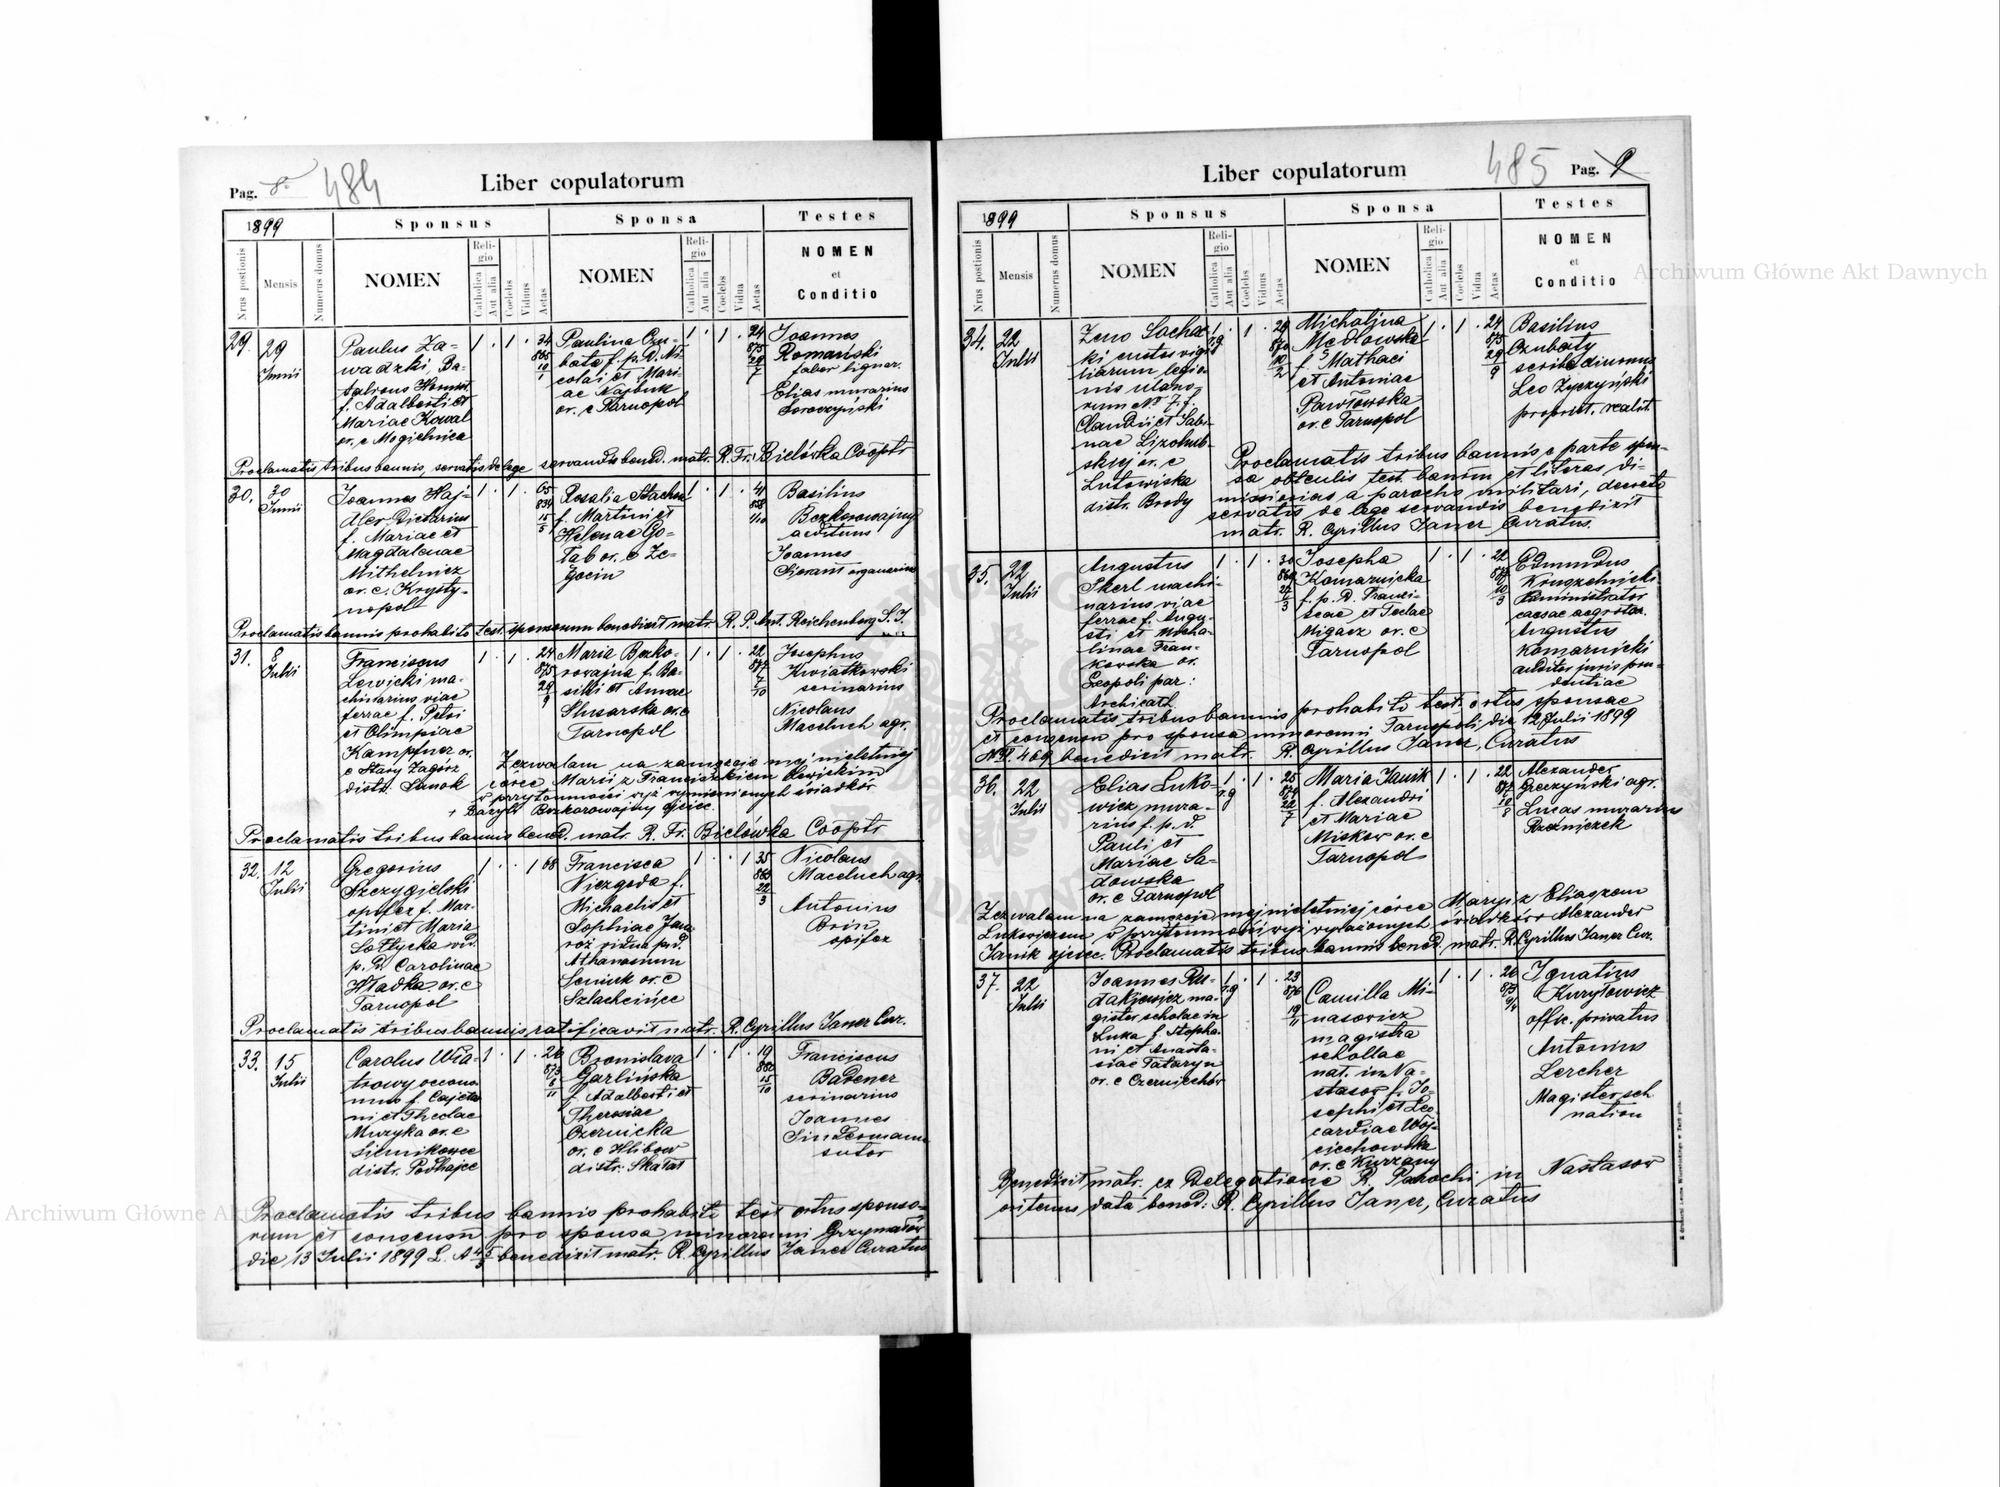 Pag. 8 484
Liber copulatorum
1899
Sponsus
Sponsa
Testes
Nrus postionis
Mensis
Numerus domus
NOMEN
Religio
Catholica
Aut alia
Coelebs
Viduus
Aetas
NOMEN
Religio
Catholica
Aut alia
Coelebs
Vidua
Aetas
NOMEN
et
Conditio
29. 29 Junii
Paulus Za-
wadzki, Ba-
f. Adalberti et
Mariae Kowal
or. e Mogielnica
1 . 1 . 34
865
10
1
Paulina Czu-
bata f. p. d. Ni-
colai et Mari-
ae Najbuk
or. e Tarnopol
1 . 1 . 24
875
29
7
Joannes
Romański
faber lignar.
Elias murarius
Soroczyński
Proclamatis tribus bannis, servatis de lege servandis bened. matr. R. Fr. Bielówka Cooptr
30. 30 Junii
Joannes Haj-
der Dietarius
f. Mariae et
Magdalenae
Mithelniez
or. e. Krysty-
nopol
1 . 1 . 65
834
15
5
Rosalia Stachow
f. Martini et
Helenae Go-
łab or. e Ze-
gocin
1 . 1 . 41
858
1/10
Basilius
Bezkorowajny
aedituus
Joannes
Sierant organarius
Proclamatis bannis prohabito test. sponsorum benedixit matr. R. P. Ant. Reichenberg S. J.
31. 8 Julii
Franciscus
Lewicki ma-
chinarius viae
ferrae f. Petri
et Olimpiae
Kampfner or.
e Stary Zagórz
distr. Sanok
1 . 1 . 24
875
29
9
Maria Bezko-
rowajna f. Ba-
silii et Annae
Slusarska or. e
Tarnopol
1 . 1 . 22
877
7
10
Josephus
Kwiatkowski
scrinarius
Nicolaus
Maceluch agr.
Zezwalam na zamęzcie mej nieletniej
córce Marii z Franciszkiem Lewickim
w przytomności wyż wymienionych świadków
+ Bazyli Bezkorowajny ojciec.
Proclamatis tribus bannis bened. matr. R. Fr. Bielówka Cooptr
32. 12 Julii
Gregorius
Szczygielski
opifex f. Mar-
tini et Maria
Sołtycka vid.
p. d. Carolinae
Hładka or. e
Tarnopol
1 . . 1 68
Francisca
Niezgoda f.
Michaelis et
Sophiae Jawo
roż vidua p. d.
Athanasium
Seniuk or. e
Szlachcińce
1 . . 1 35
863
22
3
Nicolaus
Maceluch agr.
Antonius
Brin
opifex
Proclamatis tribus bannis ratificavit matr. R. Cyrillus Janer Cur.
33. 15 Julii
Carolus Wia-
trowy oecono
mus f. Cajeta
ni et Theclae
Muzyka or. e
Silnikowce
distr. Podhajce
1 . 1 . 26
873
8
11
Bronislava
Garlińska
f. Adalberti et
Theresiae
Czernicka
or. e Hlibow
distr. Skałat
1 . 1 . 19
880
15
10
Franciscus
Badener
scrinarius
Joannes
Lindermann
sutor
Proclamatis tribus bannis prohabito test ortus sponso-
rum et consensu pro sponsa minorenni Grzymałów
die 13 Julii 1899 L. A 4/5 benedixit matr. R. Cyrillus Janer Curatus
Liber copulatorum
485 Pag. 9
1899
Sponsus
Sponsa
Testes
Nrus postionis
Mensis
Numerus domus
NOMEN
Religio
Catholica
Aut alia
Coelebs
Viduus
Aetas
NOMEN
Religio
Catholica
Aut alia
Coelebs
Vidua
Aetas
NOMEN
et
Conditio
34. 22 Julii
Zeno Sochac
ki custos vigi
liarum legio-
nis ulano-
rum Nº 7. f.
Claudii et Sabi-
nae Lizohub-
skiej or. e
Lutowiska
distr. Brody
1 r.g . 1 . 28
870
10
2
Michalina
Medłowska
f. Mathaei
et Antoniae
Pawłowska
or. e Tarnopol
1 . 1 . 24
875
29
9
Basilius
Czubaty
scriba diurnus
Leo Życzyński
propriet. realit.
Proclamatis tribus bannis e parte spon-
sa obtentis test. bannm et literas di-
missorias a parocho militari, decreto
servatis de lege servandis benedixit
matr. R. Cyrillus Janer Curatus.
35. 22 Julii
Augustus
Skerl machi-
narius viae
ferrae f. Augu-
sti et Micha-
linae Fran-
kowska or.
Leopoli par:
Archicath
1 . 1 . 30
869
Josepha
Komarnicka
f. p. d. Franci-
scae et Teclae
Migacz or. e
Tarnopol
1 . 1 . 22
Edmundus
administrator
cassae aegrotor.
Augustus
Komarnicki
auditor juris pru-
dentiae
Proclamatis tribus bannis prohabito test. ortus sponsae
et consensu pro sponsa minorenni Tarnopoli die 12 Julii 1899
469 benedixit matr. R. Cyrillus Janer, Curatus
36. 22 Julii
Elias Luko-
wicz mura-
rius f. p. d.
Pauli et
Mariae Sa-
dowska
or. e Tarnopol
1 r.g . 1 . 25
874
22
7
Maria Janik
f. Alexandri
et Mariae
Miskow or. e
Tarnopol
1 . 1 . 22
877
18
8
Alexander
Greczyński agr.
Lucas murarius
Rzeźniczek
Zezwalam na zamęzcie mej nieletniej córce Maryi z Eliaszem
Lukowiczem w przytomności wyż wyrażonych świadków Alexander
Janik ojciec. Proclamatis tribus bannis bened. matr. R. Cyrillus Janer Cur.
37. 22 Julii
Joannes Ru-
dakiewicz ma-
gister scholae in
Luka f. Stepha-
ni et Anasta-
siae Tataryn
or. e Czerniechów
1 r.g . 1 . 23
876
19
11
Camilla Mi-
nasowicz
magistra
scholae
nat. in Na-
stasow f. Jo-
sephi et Leo
cardiae Woj-
ciechowska
or. e Kurzany
1 . 1 . 26
873
9/4
Ignatius
Kuryłowicz
offic. privatus
Antonius
Lercher
Magister sch
nation
Benedixit matr. ex Delegatione R. Parochi in Nastasow
oretenus data bened. R. Cyrillus Janer, Curatus
Archiwum Główne Akt Dawnych
Archiwum Główne Akt